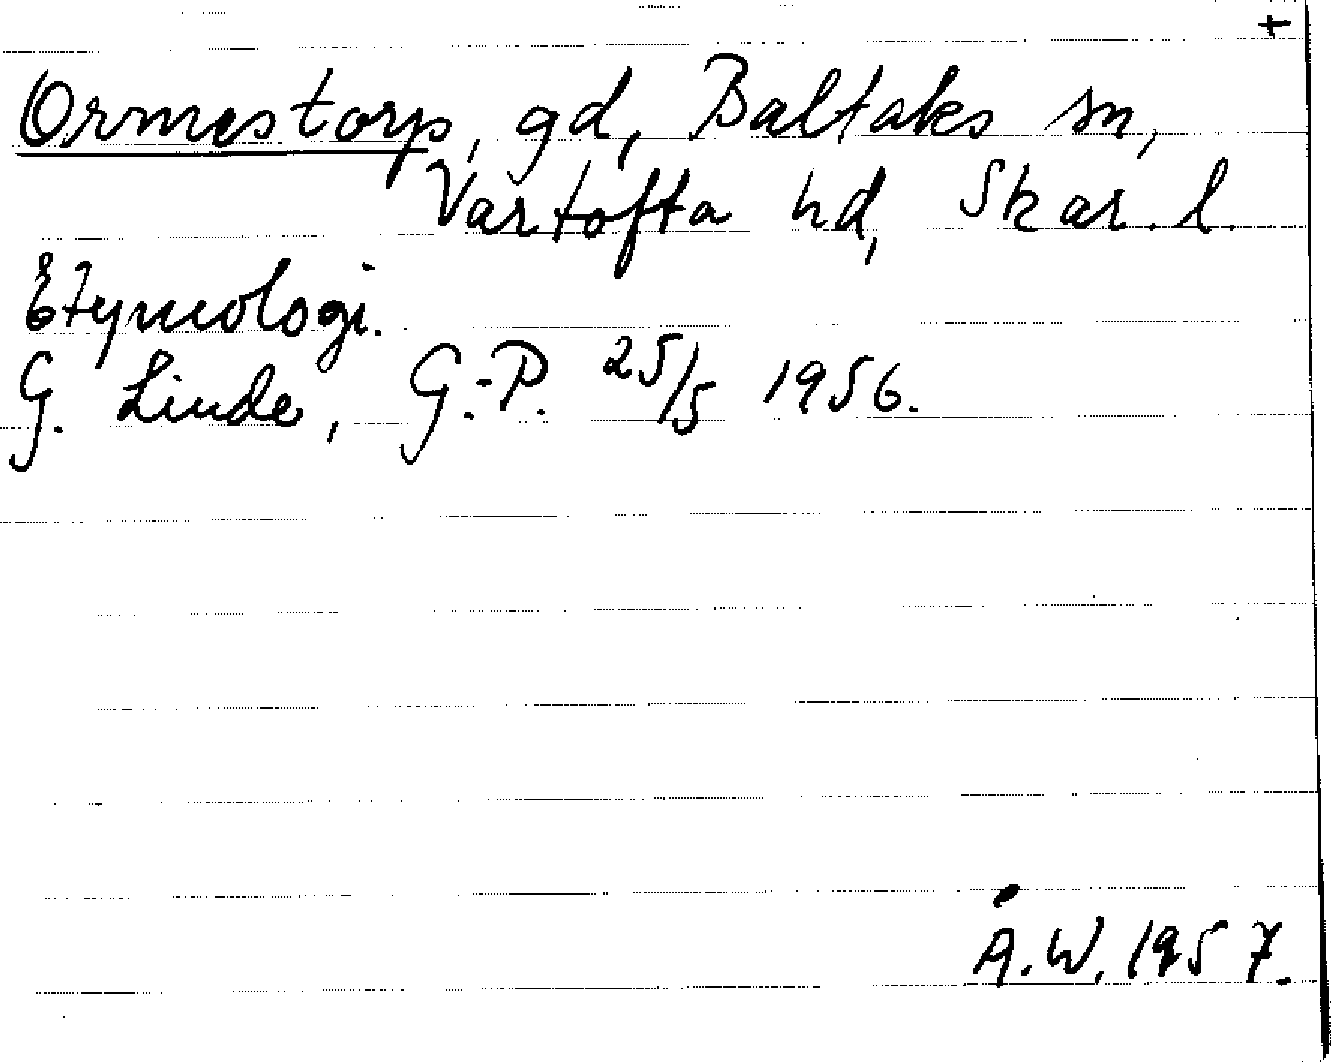 +
Ormestorp, gd, Baltaks sn,
Vartofta hd, Skar. l.
Etymologi.
G. Linde, G.-P. 25/5 1956.
Å.W. 1957.